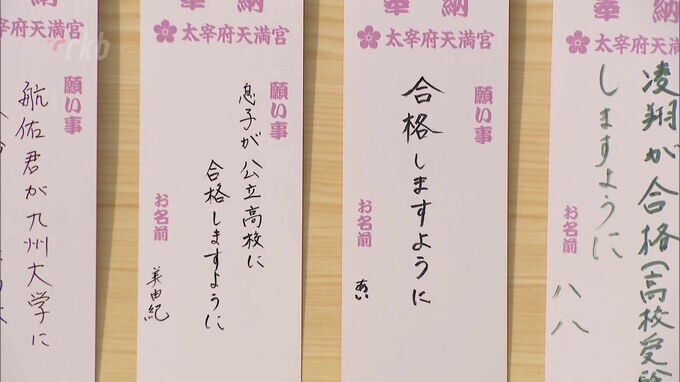 rkb
奉納
太宰府天満宮
願い事
航佑君が九州大学に
奉納
太宰府天満宮
願い事
息子が公立高校に
合格しますように
お名前
美由紀
奉納
太宰府天満宮
願い事
合格しますように
お名前
あい
奉納
太宰府天満宮
凌翔が合格(高校受験
しますように
お名前
八八